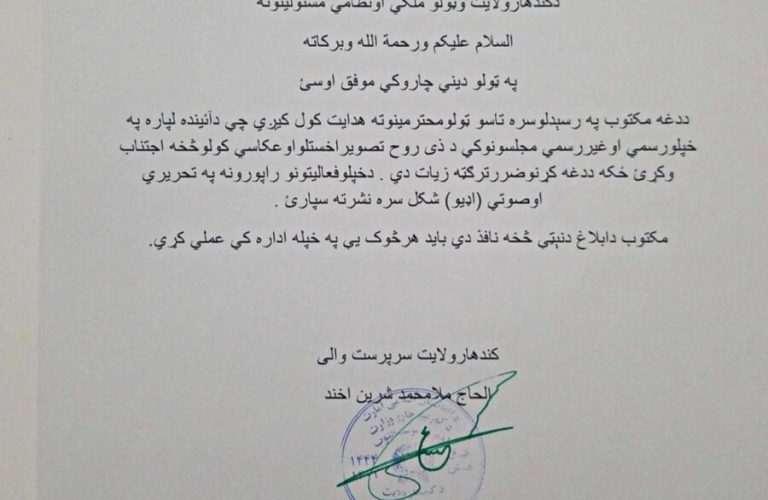 دکندهارولایت وټولو ملکي اونظامي مسئولینوته
السلام علیکم ورحمة الله وبرکاته
په ټولو دیني چاروکي موفق اوسئ
ددغه مکتوب په رسېدلوسره تاسو ټولومحترمینوته هدایت کول کیږي چي دآئینده لپاره په
خپلورسمي اوغیررسمي مجلسونوکي د ذی روح تصویراخستلواوعکاسي کولوڅخه اجتناب
وکړئ ځکه ددغه کړنوضررترګټه زیات دي . دخپلوفعالیتونو راپورونه په تحریري
اوصوتي (اډیو) شکل سره نشرته سپارئ .
مکتوب دابلاغ دنېټې څخه نافذ دي باید هرڅوک یي په خپله اداره کي عملي کړي.
کندهارولایت سرپرست والی
الحاج ملامحمد شرین اخند
۱۴۴۴